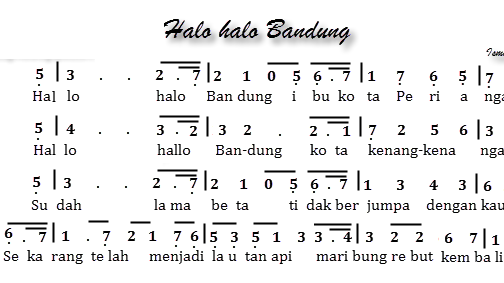 Halo halo Bandung
5 | 3 . . 2 . 7 | 2 1 0 5 6 . 7 | 1 7 6 5 | 7
Hal lo halo Ban dung i bu ko ta Pe ri a nga
5 | 4 . . 3 . 2 | 3 2 . 2 . 1 | 7 2 5 6 | 3
Hal lo hallo Ban-dung ko ta kenang-kena nga
5 | 3 . . 2 . 7 | 2 1 0 5 6 . 7 | 1 3 4 3 | 6
Su dah la ma be ta ti dak ber jumpa dengan kau
6 . 7 | 1 . 7 2 1 7 6 | 5 3 5 1 3 3 . 4 | 3 2 2 6 7 | 1
Se ka rang te lah menjadi la u tan api mari bung re but kem ba li